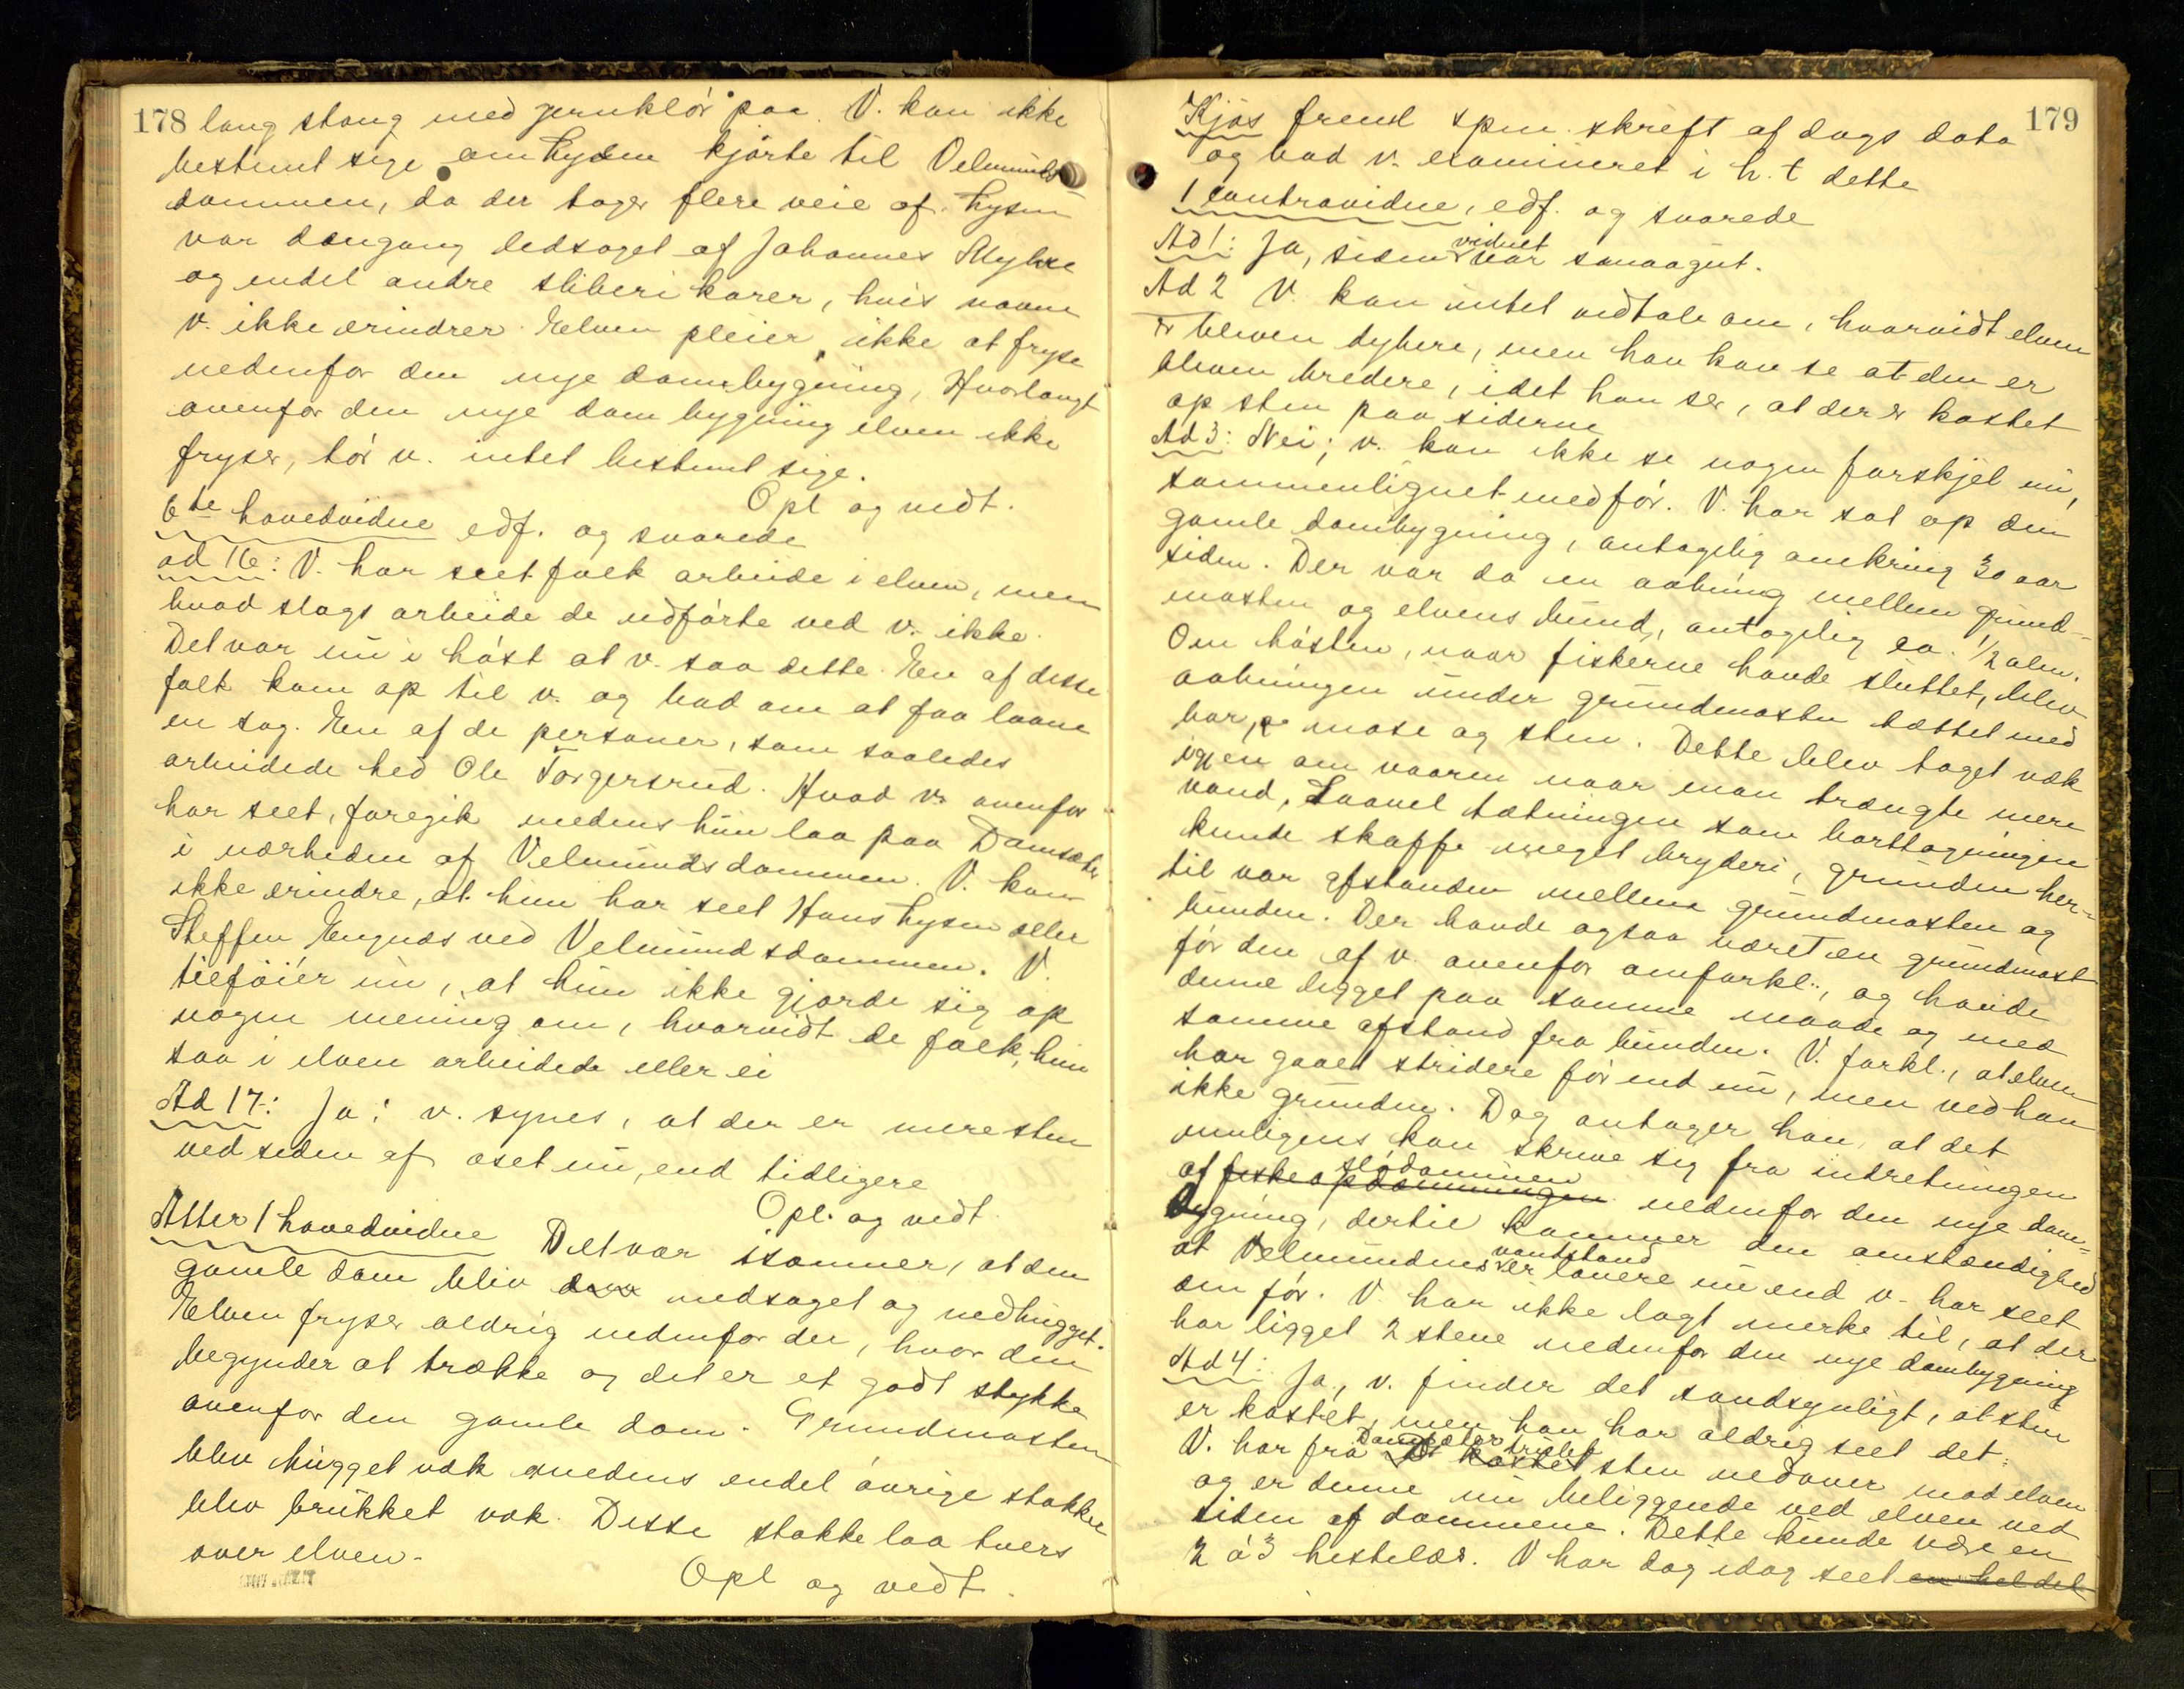 178 lang stang med jernklór paa. V. kan ikke
bestemt sige om Lysen kjørte til Velmunds
dammen, da der tager flere veie af. Lysen
var dengang ledsaget af Johannes Myhre
og endel andre sliberikarer, hvis navne
v. ikke erindrer. Elven pleier ikke at fryse
nedenfor den nye dambygning, Hvorlangt
ovenfor den nye dam bygning elven ikke
fryser, tór v. intet bestemt sige.
Opl og vedt.
6te hovedvidne edf. og svarede
ad 16: V. har seet folk arbeide i elven, men
hvad slags arbeide de udførte ved v. ikke.
Det var nu i høst at v. saa dette. En af disse
folk kom op til v. og bad om at faa laane
en sag. En af de personer, som saaledes
arbeidede hed Ole Torgersrud. Hvad v. ovenfor
har seet, foregik medens hun laa paa Damsæter
i nærheden af Velmundsdammen. V. kan
ikke erindre, at hun har seet Hans Lysen eller
Steffen Engnæs ved Velmundsdammen. V.
tilføier nu, at hun ikke gjorde sig op
nogen mening om, hvorvidt de folk, hun
saa i elven arbeidede eller ei
Ad 17: Ja; v. synes, at der er mere sten
ved siden af oset nu, end tidligere
Opl. og vedt.
Atter 1 hovedvidne Det var isommer, at den
gamle dam blev nedsaget og nedhugget.
Elven fryser aldrig nedenfor der, hvor den
begynder at trække og det er et godt stykke
ovenfor den gamle dam. Grundmasten
blev hugget væk medens endel øvrige stokke
blev brukket væk. Disse stokke laa tvers
over elven.
Opl og vedt.
Kjøs freml spm. skrift af dags dato 179
og bad v. examineret i h. t dette
1 contravidne, edf. og svarede
Ad 1: Ja, siden vidnet var smaagut.
Ad 2 V. kan intet udtale om, hvorvidt elven
er bleven dybere, men han kan se at den er
bleven bredere, idet han ser, at der er kastet
op sten paa siderne
Ad 3: Nei; v. kan ikke se nogen forskjel nu,
sammenlignet med før. V. har sat op den
gamle dambygning, antagelig omkring 30 aar
siden. Der var da en aabning mellem grund-
masten og elvens bund, antagelig ca. 1/2 alen.
Om høsten, naar fiskerne havde sluttet, blev
aabningen under grundmasten tættet med
bar, mose og sten. Dette blev taget væk
igjen om vaaren naar man trængte mere
vand, Saavel tætningen som borttagningen
kunde skaffe meget bryderi, grunden her-
til var afstanden mellem grundmasten og
bunden. Der havde ogsaa været en grundmast
før den af v. ovenfor omforkl., og havde
denne ligget paa samme maade og med
samme afstand fra bunden. V. forkl., at elven
har gaaet stridere før end nu, men ved han
ikke grunden. Dog antager han, at det
muligens kan skrive sig fra indretningen
af fiskeopdæmningen flødammen nedenfor den nye dam-
bygning, dertil kommer den omstændighed
at Velmundens vandstand er lavere nu end v. har seet
den før. V. har ikke lagt merke til, at der
har ligget 2 stene nedenfor den nye dambygning
Ad 4: Ja, v. finder det sandsynligt, at sten
er kastet, men han har aldrig seet det.
V. har fra Damsæter trillet kastet sten nedover mod elven
og er denne nu beliggende ved elven ved
siden af dammene. Dette kunde være en
2 à 3 hestelæs. V har dog idag seet en hel del